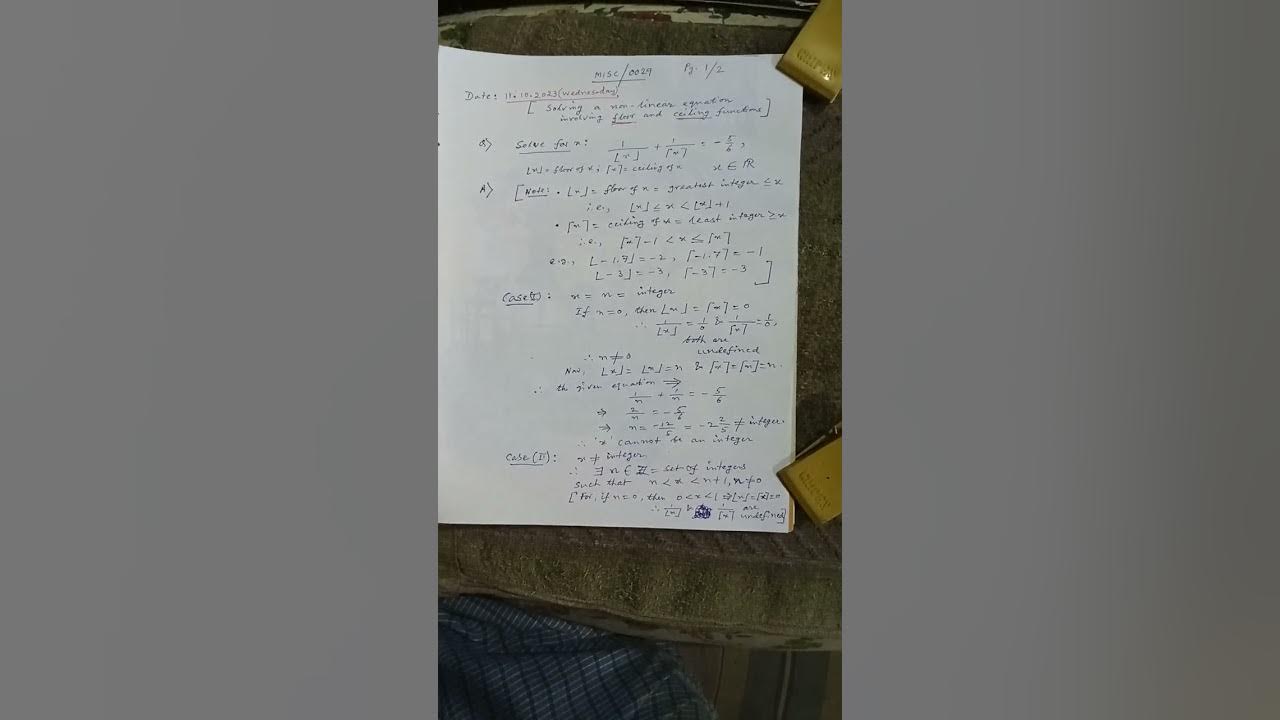 MISC/0029 Pg. 1/2
Date: 11.10.2023 (Wednesday)
[Solving a non-linear equation
involving floor and ceiling functions]
Q) Solve for x: 1/⌊x⌋ + 1/⌈x⌉ = -5/6,
⌊x⌋ = floor of x; ⌈x⌉ = ceiling of x x ∈ ℝ
A) [Note: • ⌊x⌋ = floor of x = greatest integer ≤ x
i.e., ⌊x⌋ ≤ x < ⌊x⌋+1
• ⌈x⌉ = ceiling of x = least integer ≥ x
i.e., ⌈x⌉-1 < x ≤ ⌈x⌉
e.g., ⌊-1.7⌋ = -2, ⌈-1.7⌉ = -1
⌊-3⌋ = -3, ⌈-3⌉ = -3]
Case(I): x = n = integer
If n=0, then ⌊x⌋ = ⌈x⌉ = 0
∴ 1/⌊x⌋ = 1/0 & 1/⌈x⌉ = 1/0,
both are
undefined
∴ n ≠ 0
Now, ⌊x⌋ = ⌊n⌋ = n & ⌈x⌉ = ⌈n⌉ = n.
∴ the given equation ⇒
1/n + 1/n = -5/6
⇒ 2/n = -5/6
⇒ n = -12/5 = -2 2/5 ≠ integer.
∴ 'x' cannot be an integer
Case(II): x ≠ integer.
∴ ∃ n ∈ ℤ = set of integers
such that n < x < n+1, n ≠ 0
[For, if n=0, then 0<x<1 ⇒ ⌊x⌋=⌈x⌉=0
∴ 1/⌊x⌋ & 1/⌈x⌉ are
undefined]